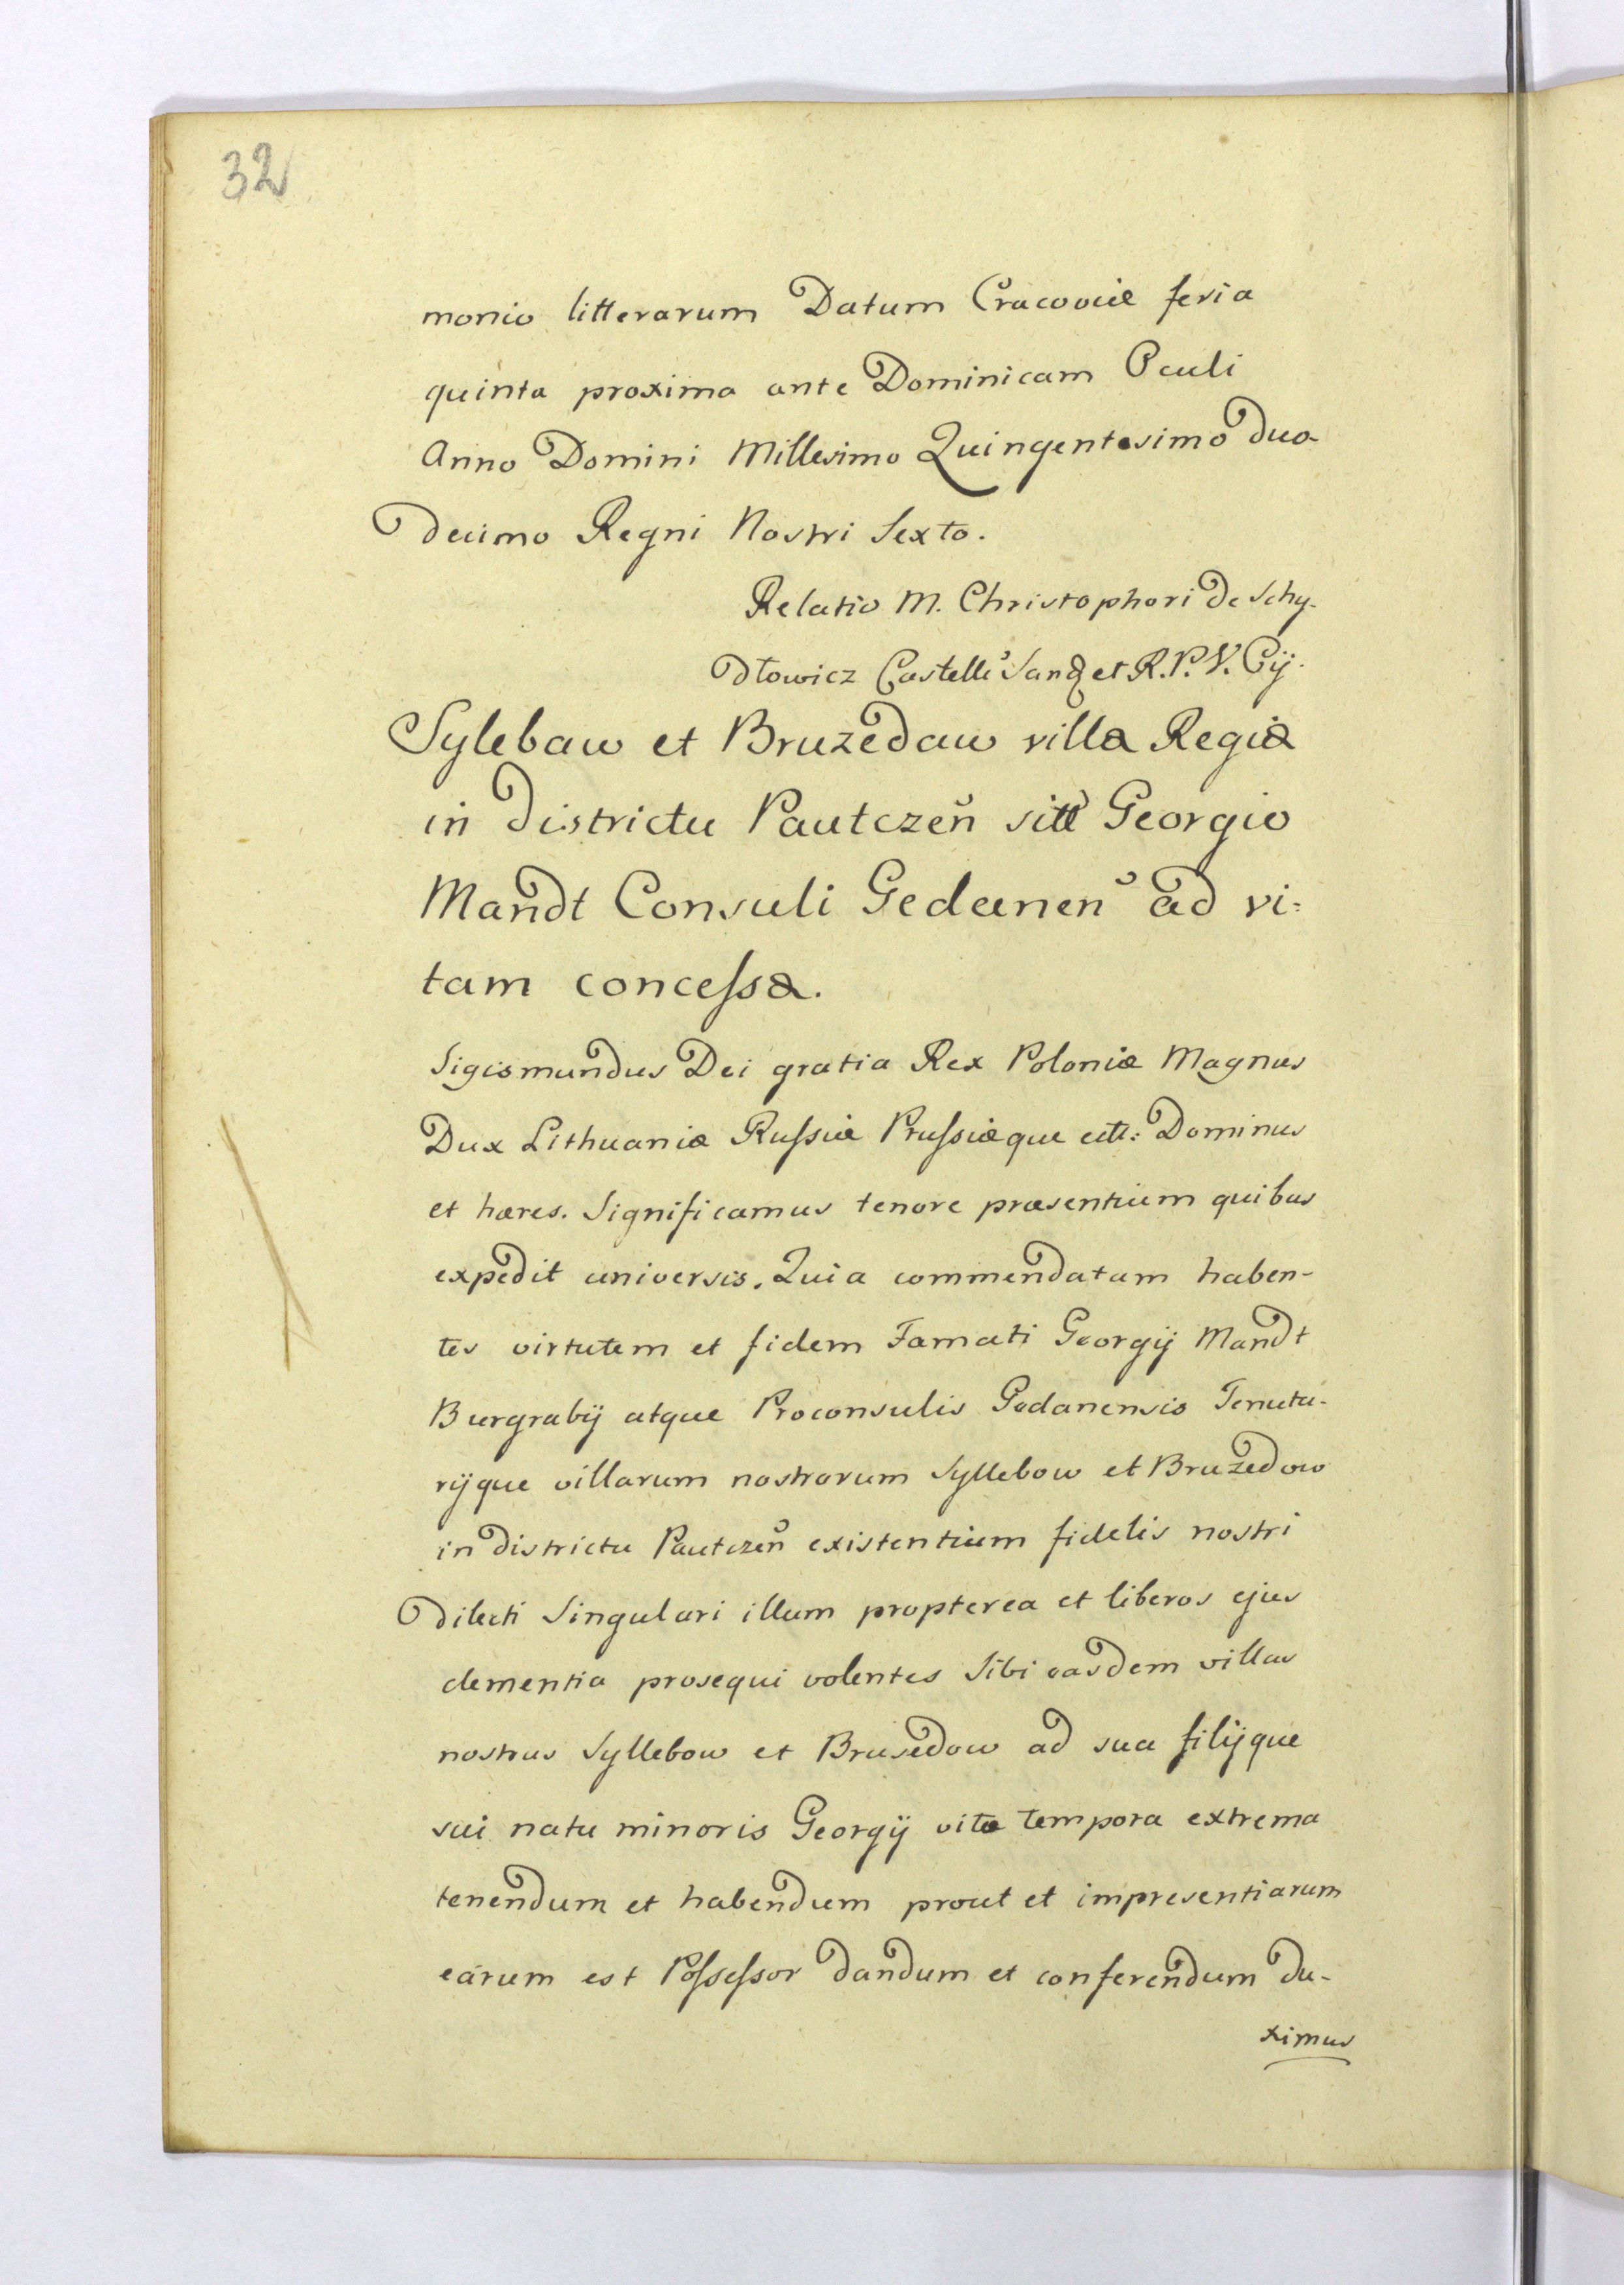 32
monio litterarum Datum Cracoviæ feria
quinta proxima ante Dominicam Oculi
Anno Domini Millesimo Quingentesimo duo-
decimo Regni Nostri Sexto.
Relatio M. Christophori de Schy-
dłowicz Castelli Sand et R. P. V. Cÿ.
Sylebaw et Bruzedaw villæ Regiæ
in districtu Pautczen̄ sitæ Georgio
Mandt Consuli Gedanen̄ ad vi=
tam concessæ.
Sigismundus Dei gratia Rex Poloniæ Magnus
Dux Lithuaniæ Russiæ Prussiæque ett: Dominus
et hæres. Significamus tenore præsentium quibus
expedit universis. Quia commendatam haben-
tes virtutem et fidem Famati Georgÿ Mandt
Burgrabÿ atque Proconsulis Gedanensis Tenuta-
rÿque villarum nostrarum Syllebow et Bruzedow
in districtu Pautczen̄ existentium fidelis nostri
dilecti Singulari illum propterea et liberos ejus
clementia prosequi volentes Sibi easdem villas
nostras Syllebow et Brusedow ad sua filÿque
sui natu minoris Georgÿ vitæ tempora extrema
tenendum et habendum prout et impresentiarum
earum est Possessor dandum et conferendum du-
ximus